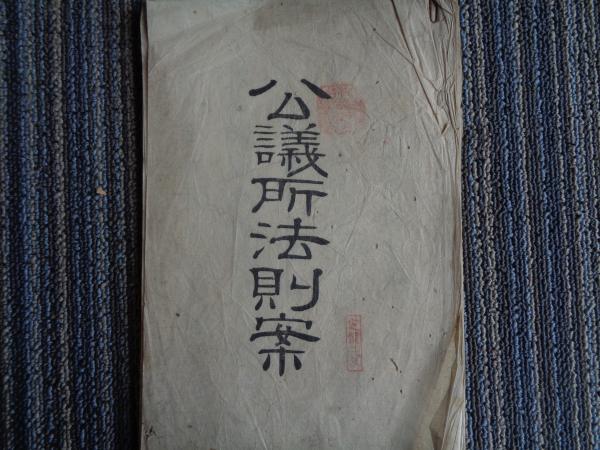 公議所法則案